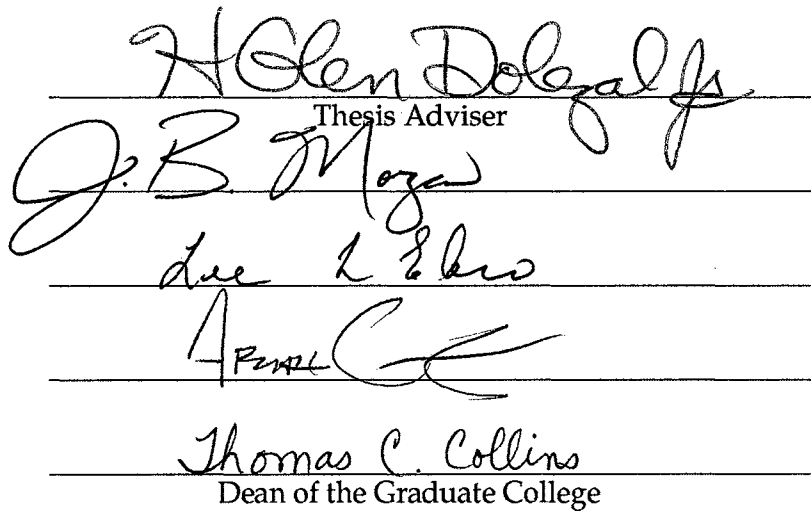 H Glen Dolezal Jr
Thesis Adviser
J. B. Morgan
Lee L Ebro
Thomas C. Collins
Dean of the Graduate College